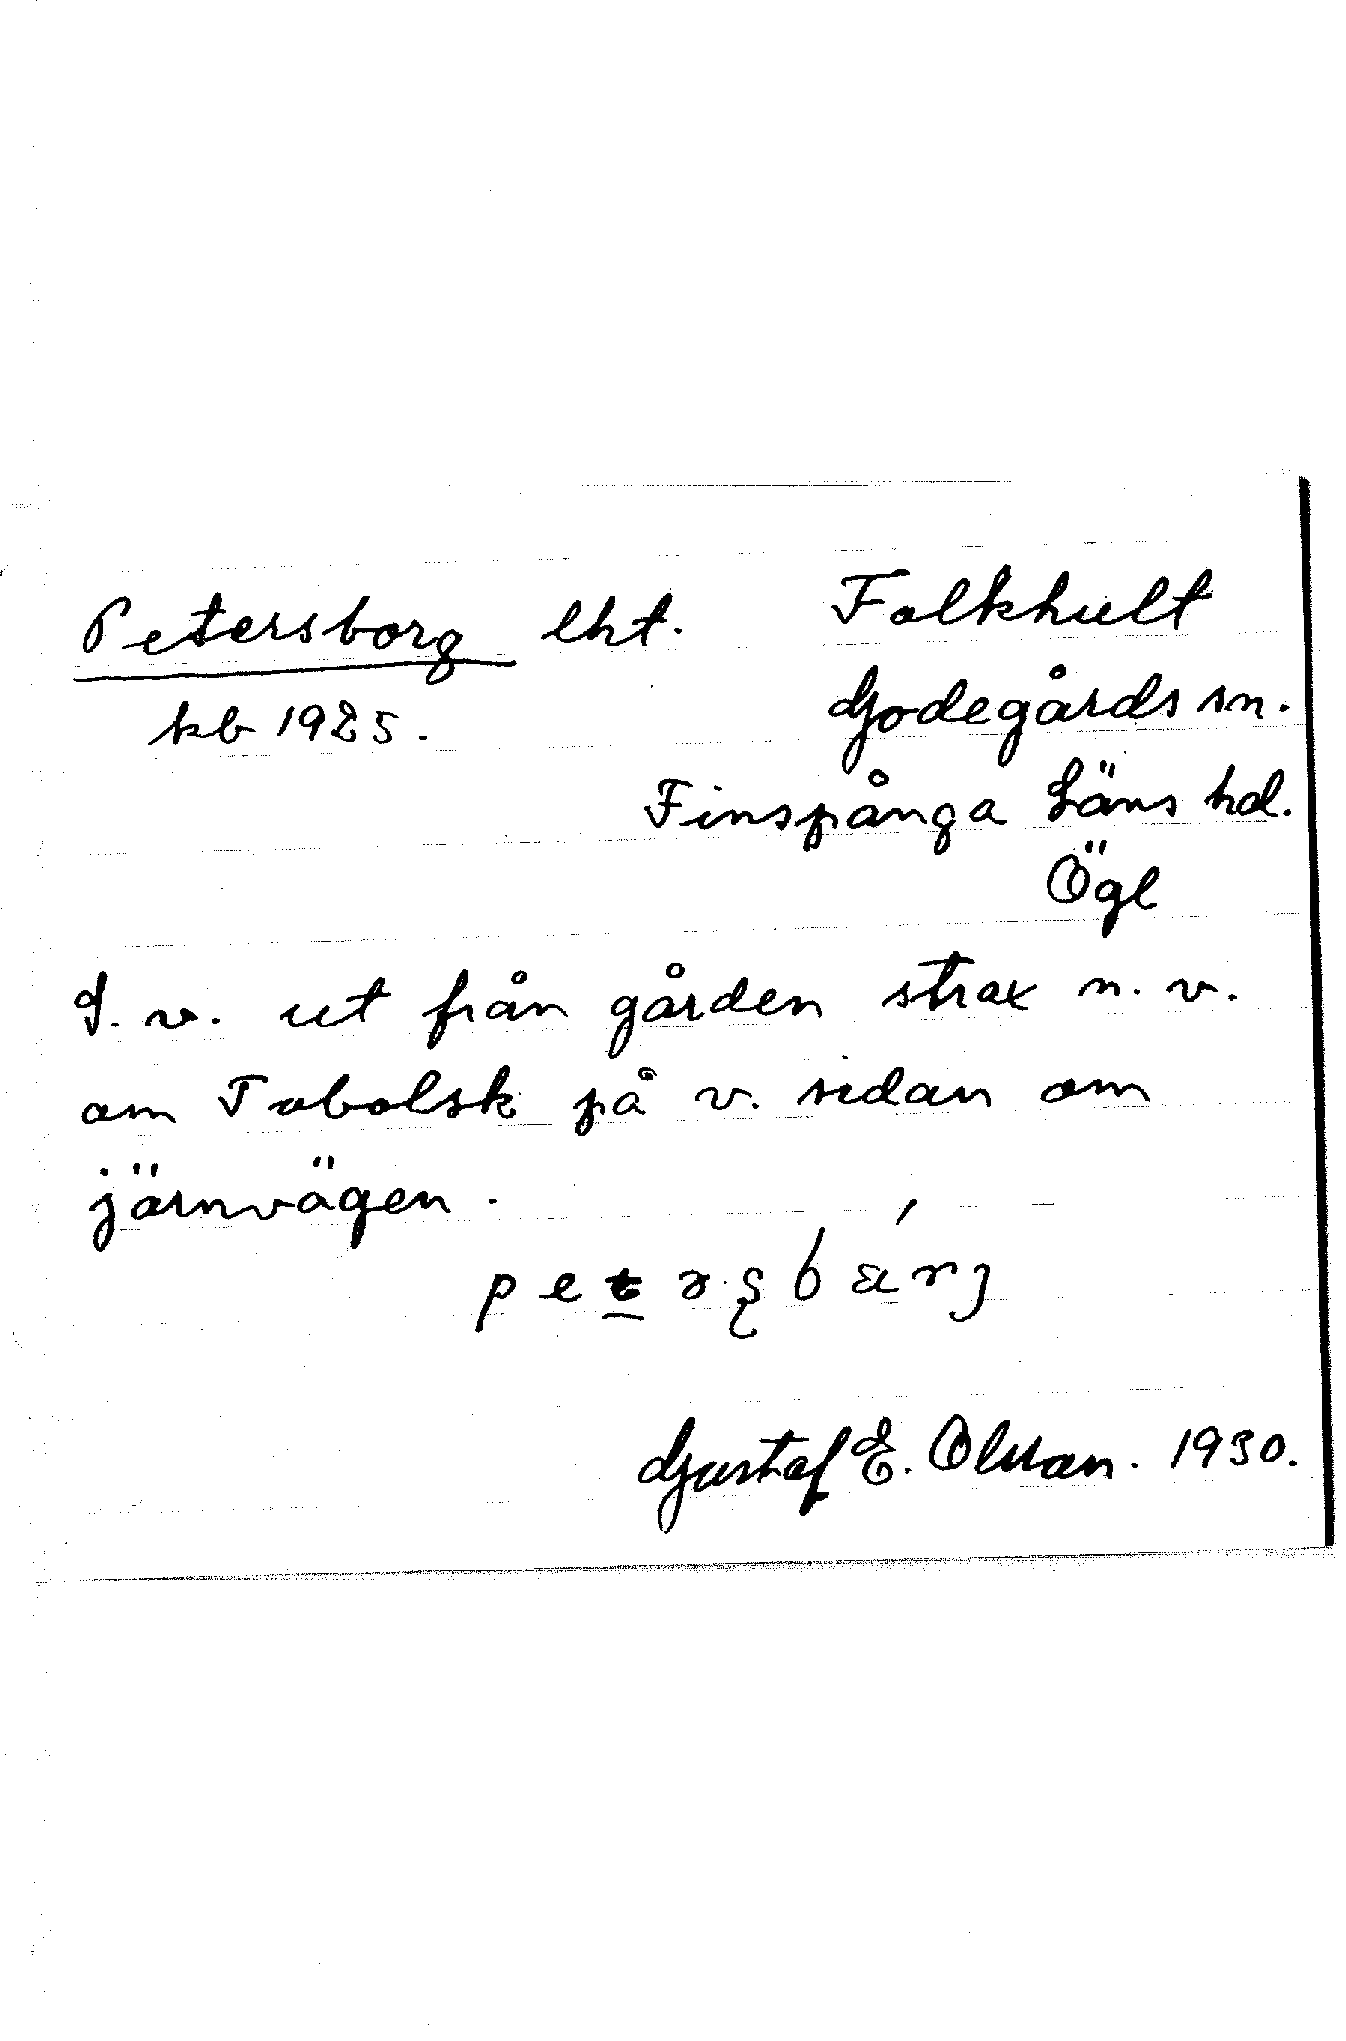 Petersborg lht. Folkhult
kb 1925. Godegårds sn.
Finspånga Läns hd.
Ögl
I. v. ut från gården strax n. v.
om Tobolsk på v. sidan om
järnvägen.
Gustaf E. Olsson. 1930.